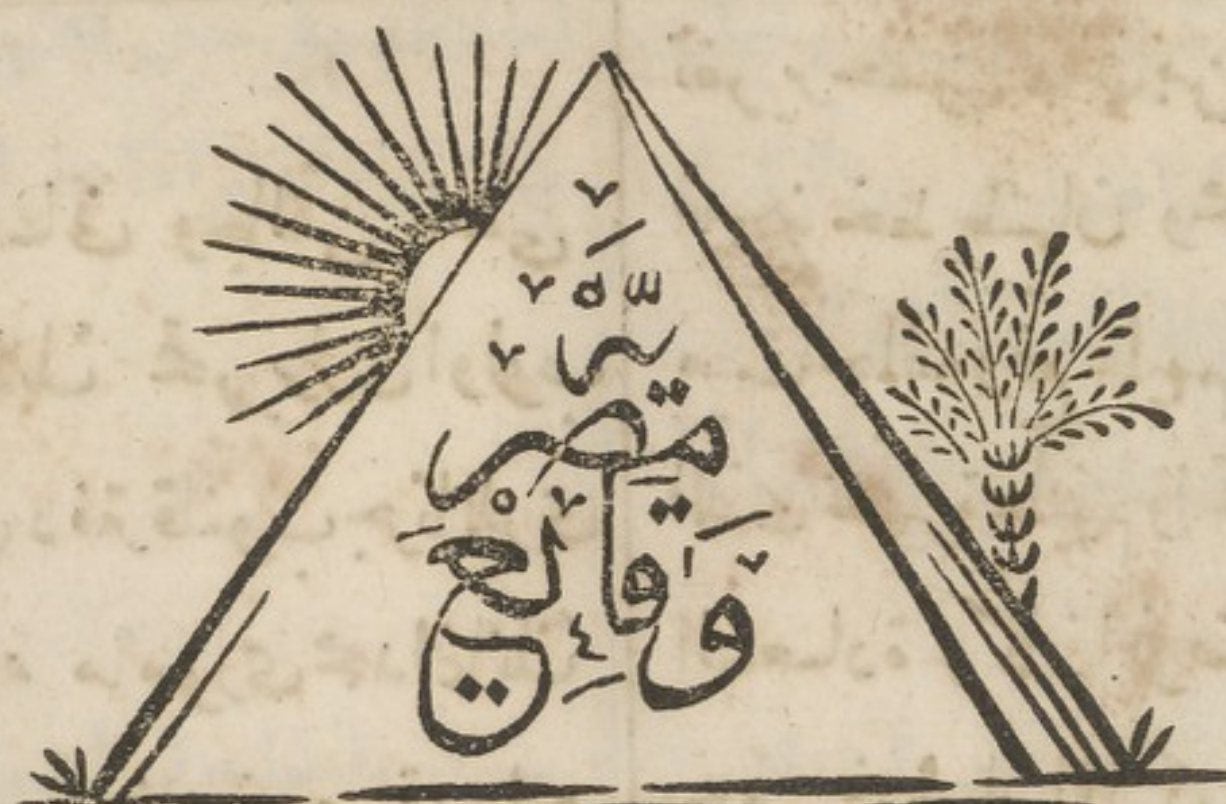 وقائع
مصریه